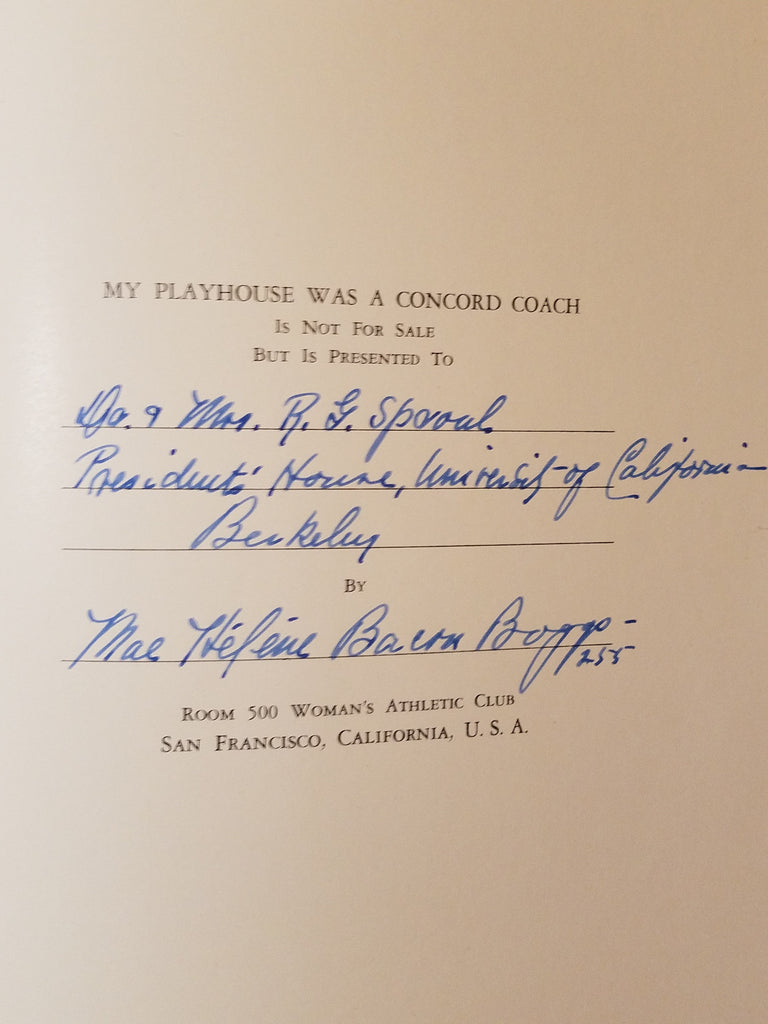 MY PLAYHOUSE WAS A CONCORD COACH
IS NOT FOR SALE
BUT IS PRESENTED TO
Dr. & Mrs. R. G. Sproul
Presidents' House, University of California
Berkeley
BY
Mae Hélène Bacon Boggs -
255
ROOM 500 WOMAN'S ATHLETIC CLUB
SAN FRANCISCO, CALIFORNIA, U. S. A.